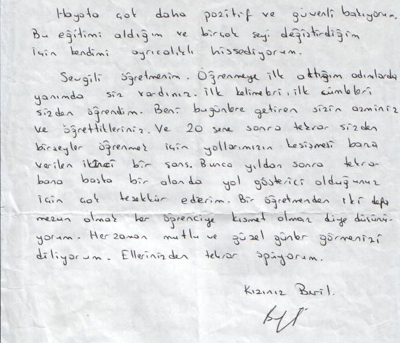 Hayata çok daha pozitif ve güvenli bakıyorum.
Bu eğitimi aldığım ve birçok şeyi değiştirdiğim
için kendimi ayrıcalıklı hissediyorum.
Sevgili öğretmenim. Öğrenmeye ilk attığım adımlarda
yanımda siz vardınız. İlk kelimeleri, ilk cümleleri
sizden öğrendim. Beni bugünlere getiren sizin azminiz
ve öğrettikleriniz. Ve 20 sene sonra tekrar sizden
birşeyler öğrenmek için yollarımızın kesişmesi bana
verilen ikinci bir şans. Bunca yıldan sonra tekrar
bana başka bir alanda yol gösterici olduğunuz
için çok teşekkür ederim. Bir öğretmenden iki defa
mezun olmak her öğrenciye kısmet olmaz diye düşünü-
yorum. Herzaman mutlu ve güzel günler görmenizi
diliyorum. Ellerinizden tekrar öpüyorum.
Kızınız Beril.